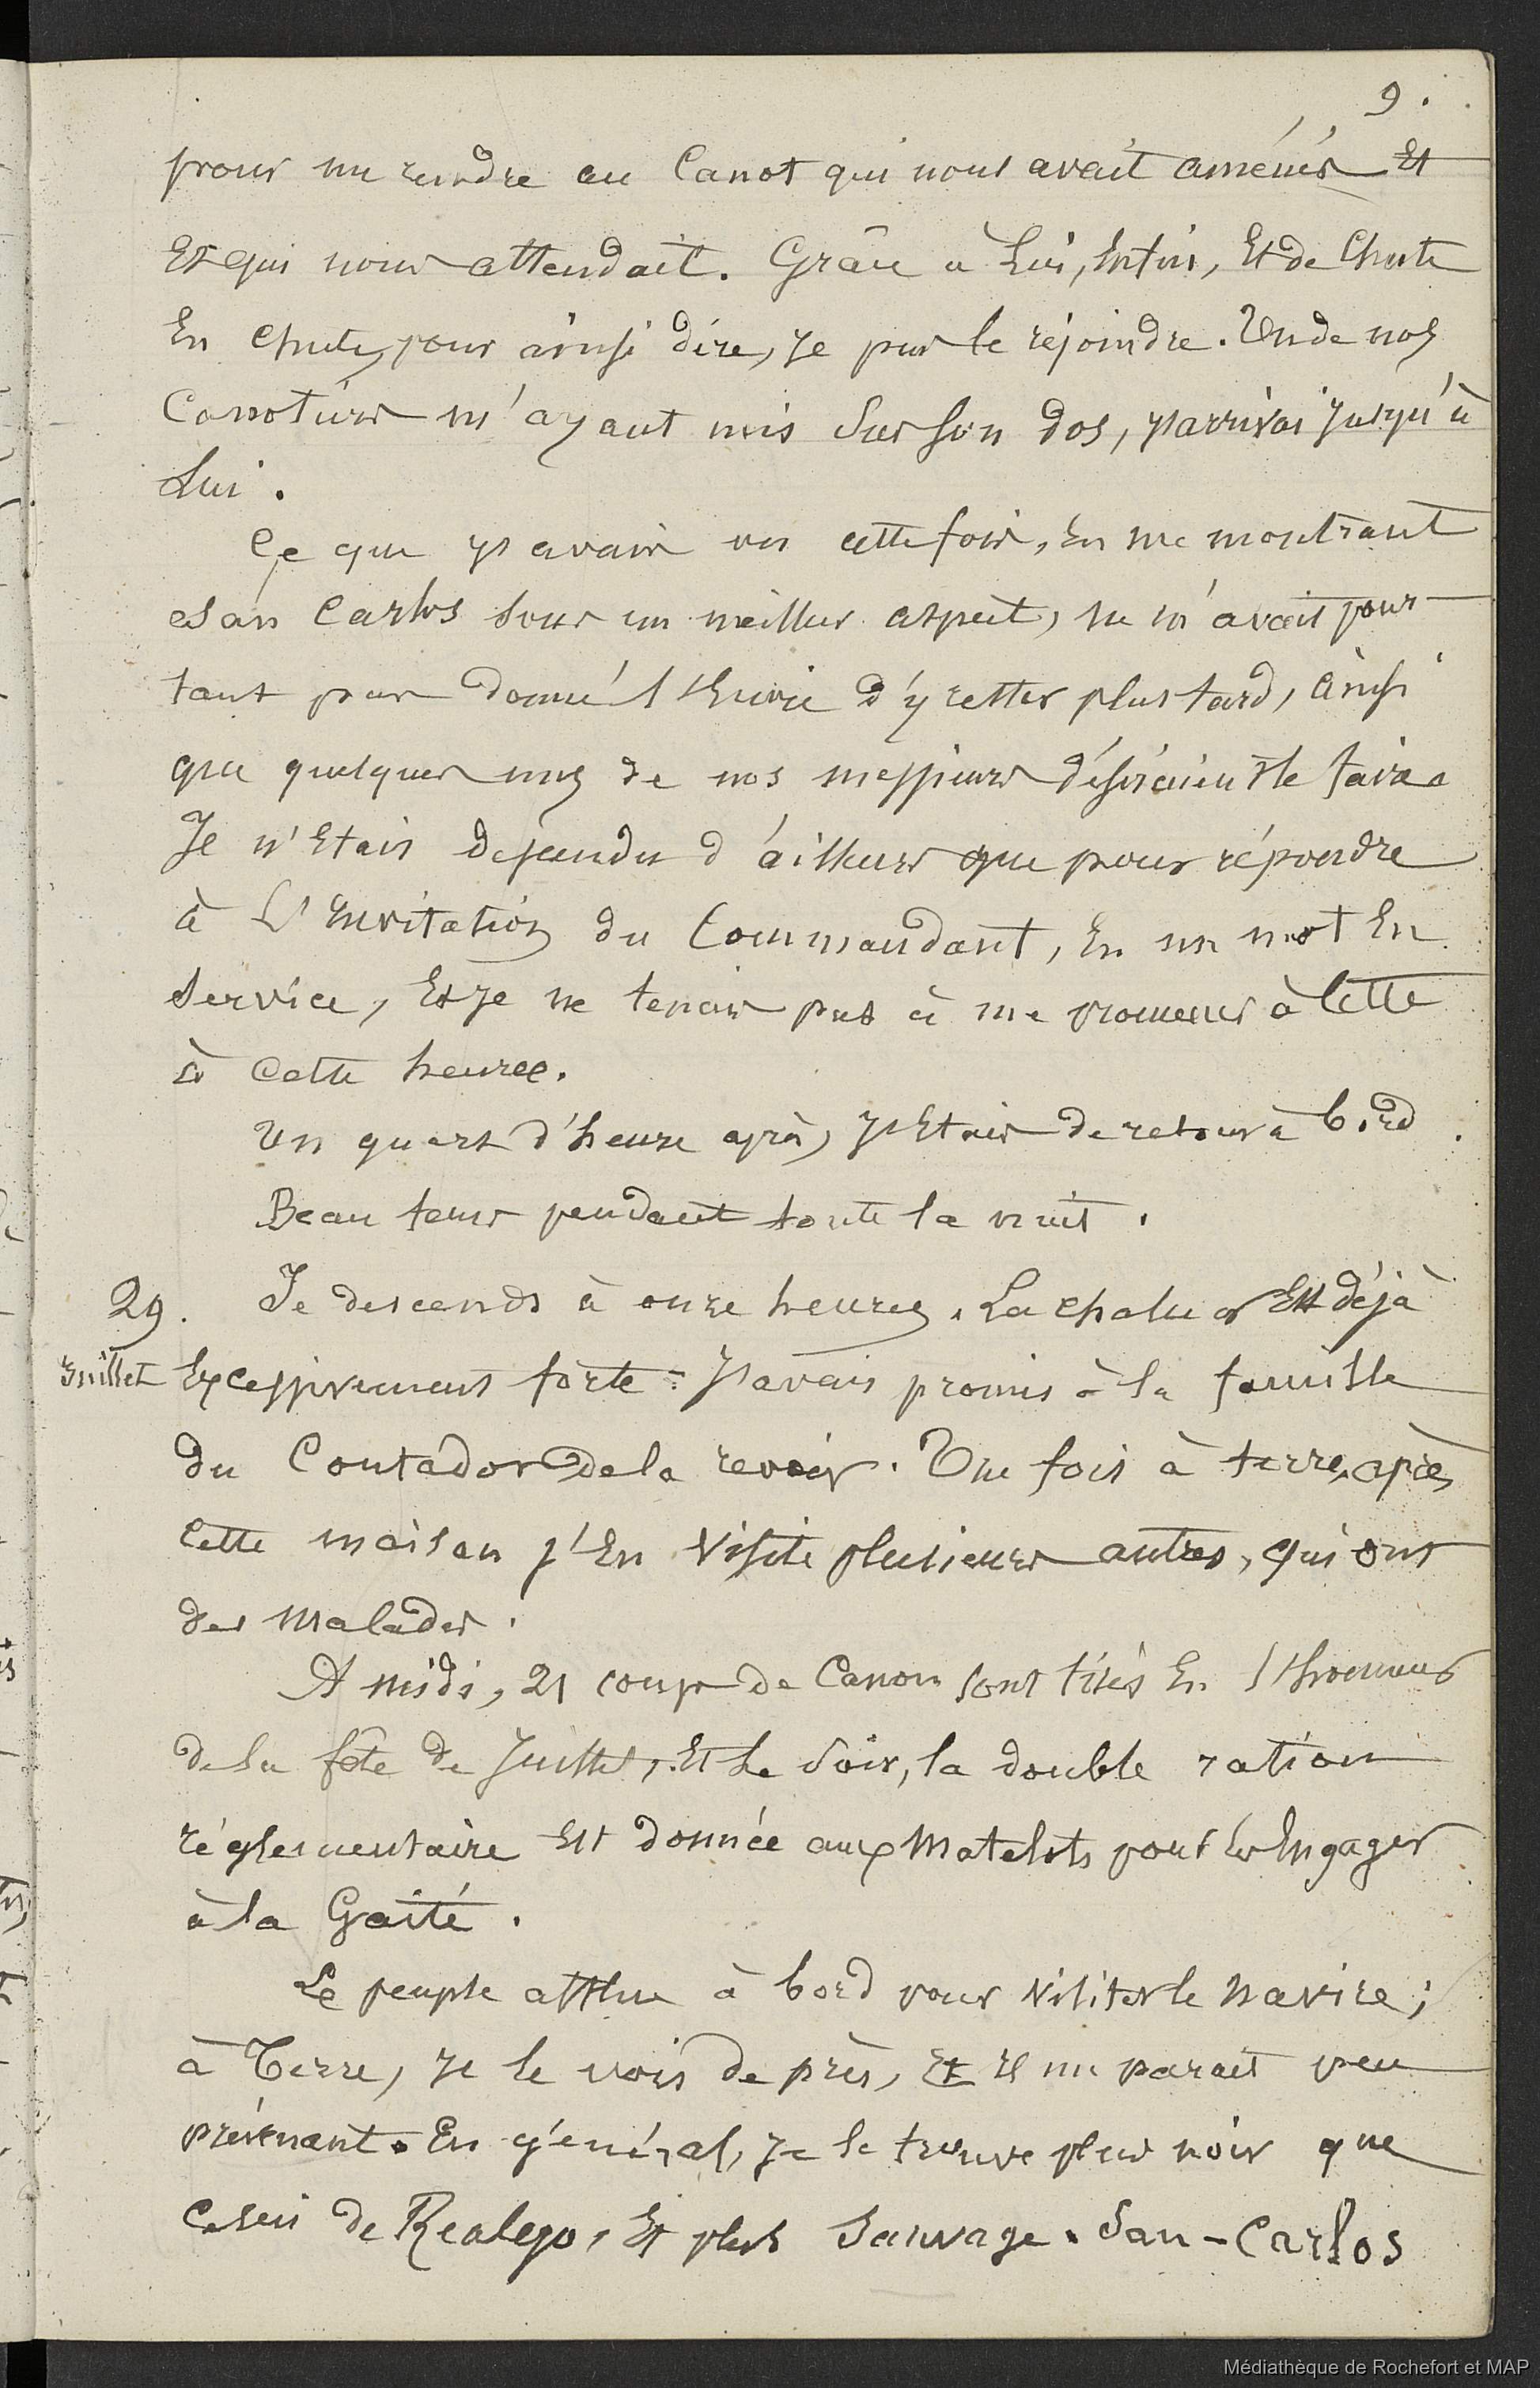 9.
pour me rendre au Canot qui nous avait aménés Et
Et qui nous attendait. Grâce à Lui, Enfin, Et de Chute
En Chute, pour ainsi dire, je pus le réjoindre. Un de nos
Canotiers m'ayant mis Sur Son dos, j'arrivai jusqu'à
Lui.
Ce que j'avais vu cette fois, En me montrant
San Carlos Sous un meilleur aspect, ne m'avait pour-
tant pas donné l'Envie d'y rester plus tard, ainsi
que quelques uns de nos messieurs désiraient le faire
Je n'Etais descendu d'ailleurs que pour répondre
à L'Invitation du Commandant, En un mot En
Service, Et je ne tenais pas à me promener à Cette
à Cette heure.
Un quart d'heure après, j'Etais de retour à bord.
Beau tems pendant toute la nuit.
29. Je descends à onze heures. La Chaleur Est déjà
Juillet Excessivement forte. J'avais promis à la famille
du Contador de la revoir. Une fois à terre, après
Cette maison j'En Visite plusieurs autres, qui ont
des Malades.
A midi, 21 coups de Canon sont tirés En l'honneur
de la fête de Juillet, Et Le Soir, la double ration
réglementaire Est donnée aux Matelots pour les Engager
à la Gaité.
Le peuple afflue à bord pour Visiter le Navire;
à Terre, je le vois de près, Et Il me parait peu
prévenant. En général, je le trouve plus noir que
Celui de Realego, Et plus Sauvage. San-Carlos
Médiathèque de Rochefort et MAP